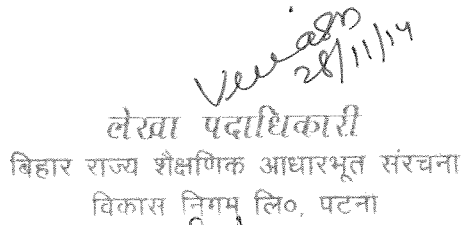 28/11/14
लेखा पदाधिकारी
बिहार राज्य शैक्षणिक आधारभूत संरचना
विकास निगम लि०, पटना